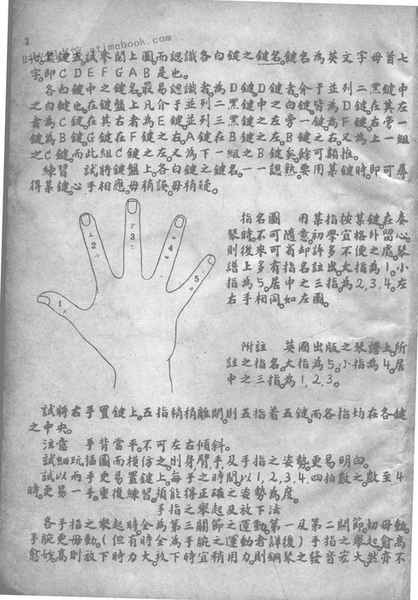 2
地名鍵盤試參閱上圖而認識各白鍵之鍵名鍵名為英文字母首七
字即CDEFGAB是也。
各白鍵中之鍵名最易認識者為D鍵D鍵者介于並列二黑鍵中
之白鍵也在鍵盤上凡介于並列二黑鍵中之白鍵皆為D鍵在其左
者為C鍵在其右者為E鍵並列三黑鍵之左旁一鍵為F鍵右旁一
鍵為B鍵G鍵在F鍵之右A鍵在B鍵之左B鍵之右又為上一組
之C鍵而此組C鍵之左又為下一組之B鍵矣餘可類推。
練習 試將鍵盤上各白鍵之鍵名一一認熟要用某鍵時即可尋
得某鍵心手相應毋稍誤毋稍疑。
指名圖 用某指按某鍵在奏
琴時不可隨意初學宜格外留心
則後來可省却許多不便之處琴
譜上多有指名註出大指為1。小
指為5居中之三指為2,3,4,左
右手相同如左圖。
1
2
3
4
5
附註 英國出版之琴譜上所
註之指名大指為5。小指為4居
中之三指為1,2,3。
試將右手置鍵上五指稍稍離開則五指着五鍵而各指均在各鍵
之中央。
注意 手背當平不可左右傾斜。
試細玩插圖而模仿之則身臂手及手指之姿勢更易明白。
試以兩手更易置鍵上每手之時間以1,2,3,4,四拍數之數至4
時更易一手重復練習須能得正確之姿勢為度。
手指之舉起及放下法
各手指之舉起時全為第三關節之運動第一及第二關節切毋動
手腕更毋動。(但有時全為手腕之運動者詳後)手指之舉起愈高
愈妙高則放下時力大放下時宜稍用力則鋼琴之發音宏大然亦不